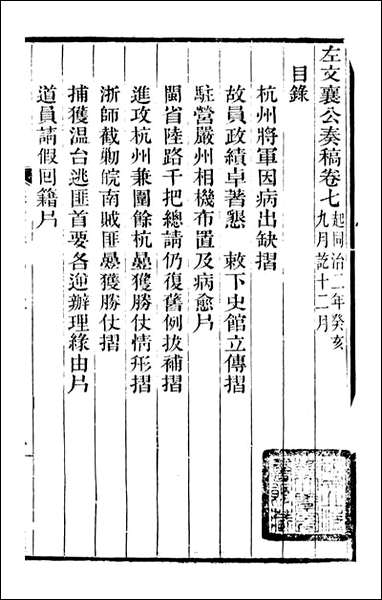 左文襄公奏稿卷七 起同治二年癸亥九月訖十二月
目錄
杭州將軍因病出缺摺
故員政績卓著懇 敕下史館立傳摺
駐營嚴州相機布置及病愈片
閩省陸路千把總請仍復舊例拔補摺
進攻杭州兼圍餘杭疊獲勝仗情形摺
浙師截勦皖南賊匪疊獲勝仗摺
捕獲温台逃匪首要各逆辦理緣由片
道員請假回籍片